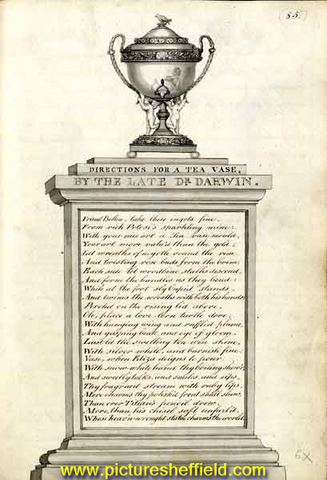 55.
DIRECTIONS FOR A TEA VASE,
BY THE LATE DR. DARWIN.
Friend Bolton, take these ingots fine
From rich Potosi's sparkling mine;
With your nice art a Tea vase mould,
Your art more valu'd than the gold;
Let wreaths of myrtle round the rim
And twisting rose buds form the brim;
Each side let woodbine stalks descend,
And form the handles as they bend
While at the foot sly Cupid stands
And twines the wreaths with both his hands;
Perch'd on the rising lid above
Oh, place a love lorn turtle dove
With hanging wing and ruffled plume,
And gasping beak, and eye of gloom.
Last let the swelling urn shine
With silver white, and burnish fine
Vase, when Eliza deigns to pour
With snow white hand thy boiling show'r
And sweetly talks, and smiles, and sips
Thy fragrant stream with ruby lips,
More charms thy polish'd shall show,
Than ever Titian's pencil drew
More, than his chisel soft unfurl'd
Whose heav'n wrought statue charms the world
www.picturesheffield.com